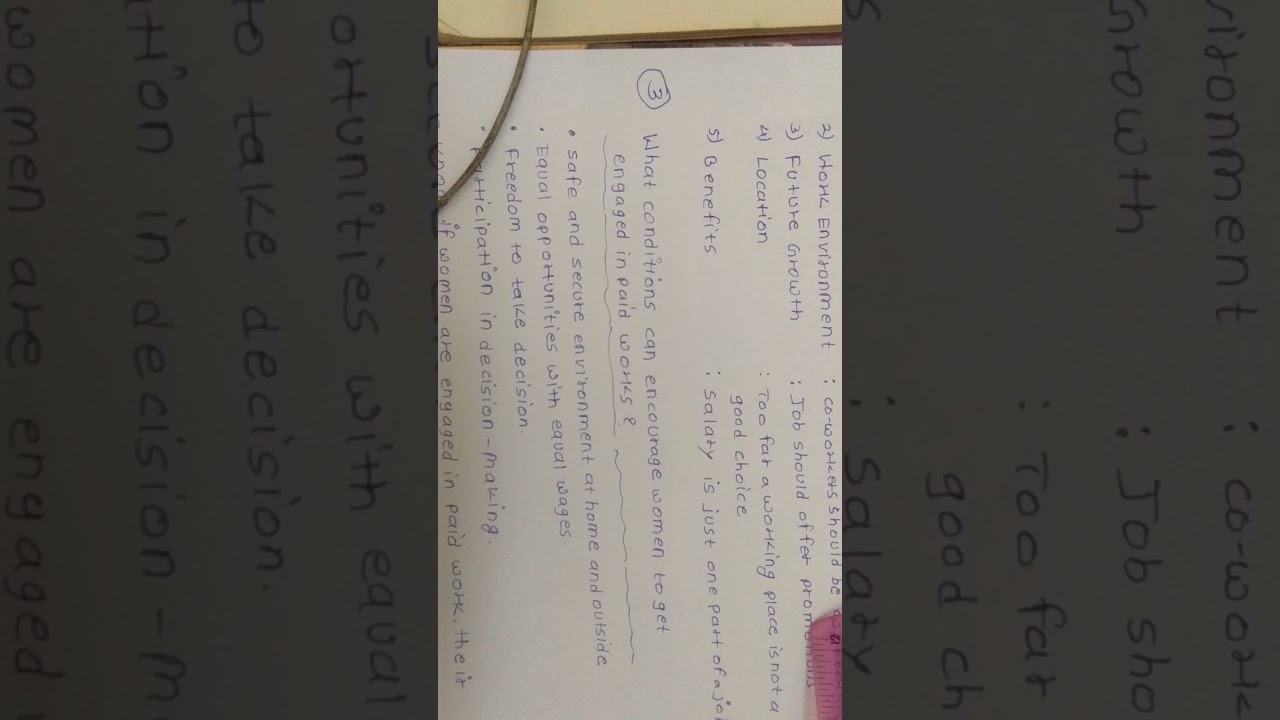 2) Work Environment : co-workers should be
3) Future Growth : Job should offer promotions
4) Location : Too far a working place is not a
good choice
5) Benefits : salary is just one part of a job
3 What conditions can encourage women to get
engaged in paid works?
• safe and secure environment at home and outside
• Equal opportunities with equal wages.
• freedom to take decision.
• Participation in decision-making.
if women are engaged in paid work, their